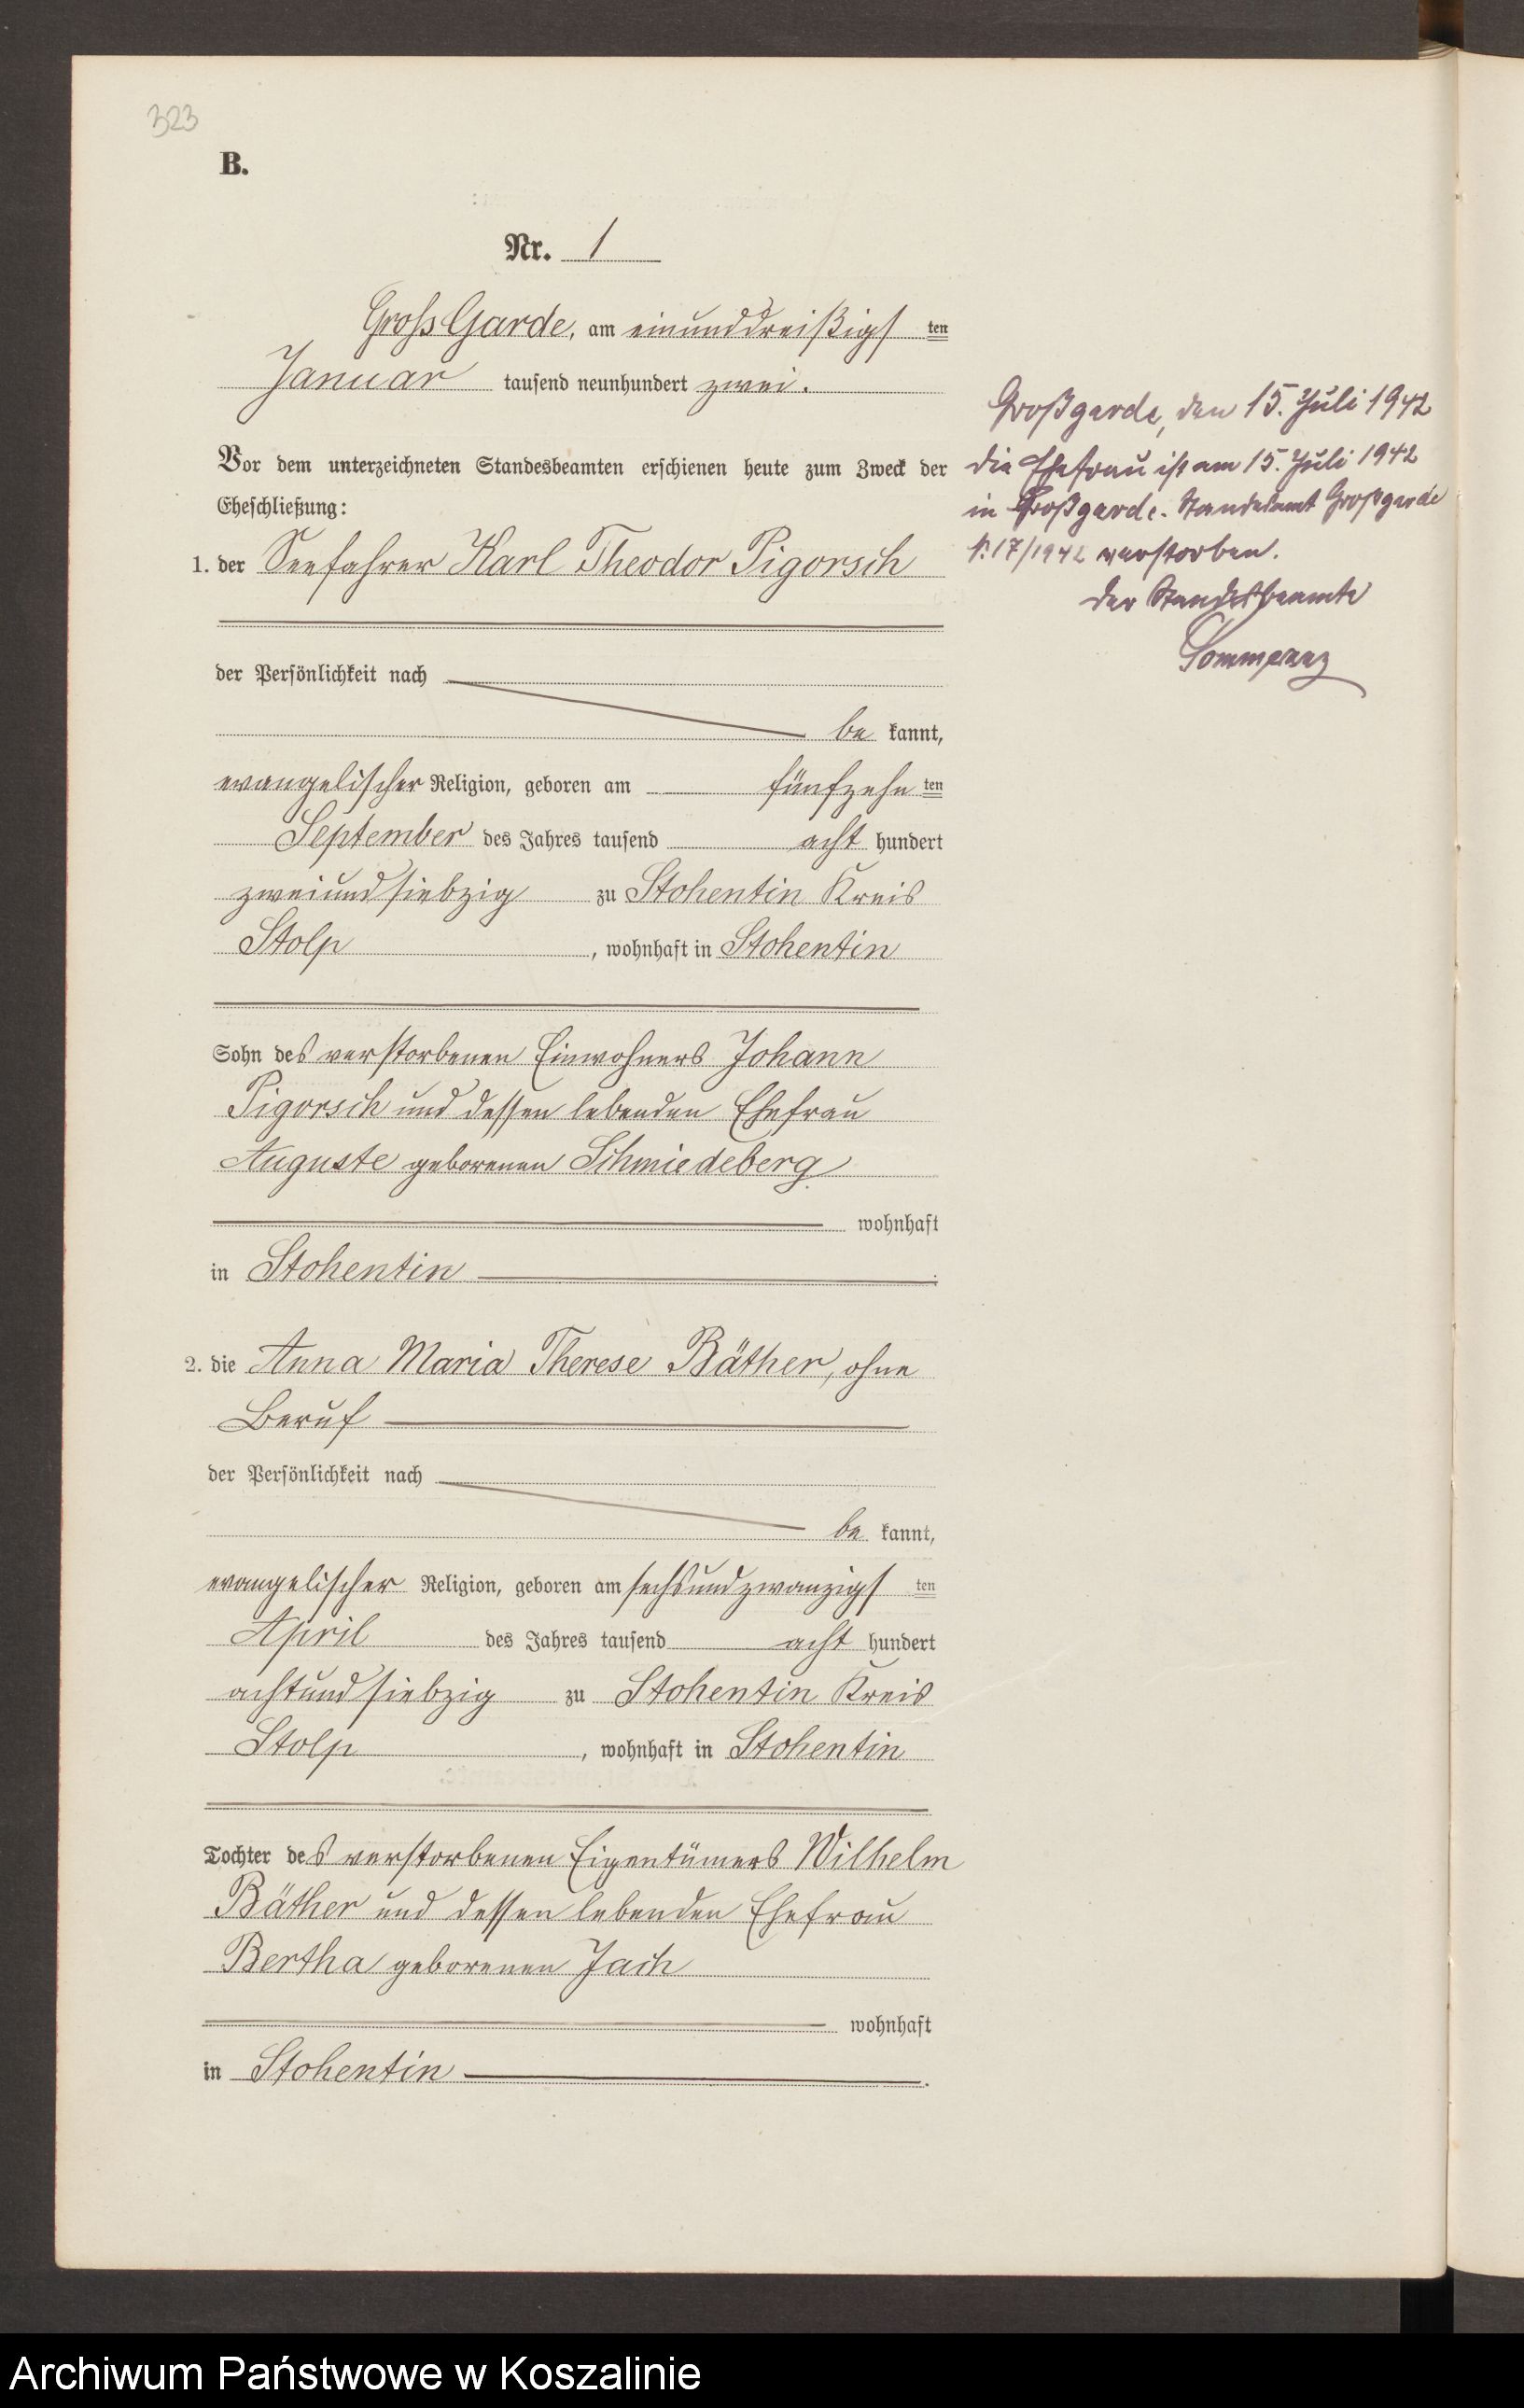 323
B.
Nr. 1
Gross Garde, am einunddreißigs ten
Januar tausend neunhundert zwei.
Vor dem unterzeichneten Standesbeamten erschienen heute zum Zweck der
Eheschließung:
1. der Seefahrer Karl Theodor Pigorsch
der Persönlichkeit nach
be kannt,
evangelischer Religion, geboren am fünfzehn ten
September des Jahres tausend acht hundert
zweiundsiebzig zu Stohentin Kreis
Stolp, wohnhaft in Stohentin
Sohn des verstorbenen Einwohners Johann
Pigorsch und dessen lebenden Ehefrau
Auguste geborenen Schmiedeberg
wohnhaft
in Stohentin.
2. die Anna Maria Therese Bäther, ohne
Beruf
der Persönlichkeit nach
be kannt,
evangelischer Religion, geboren am sechsundzwanzigs ten
April des Jahres tausend acht hundert
achtundsiebzig zu Stohentin Kreis
Stolp, wohnhaft in Stohentin
Tochter des verstorbenen Eigentümers Wilhelm
Bäther und dessen lebenden Ehefrau
Bertha geborenen Jach
wohnhaft
in Stohentin.
Großgarde, den 15. Juli 1942
Die Ehefrau ist am 15. Juli 1942
in Großgarde. Standesamt Großgarde
17/1942 verstorben.
Der Standesbeamte
Archiwum Państwowe w Koszalinie